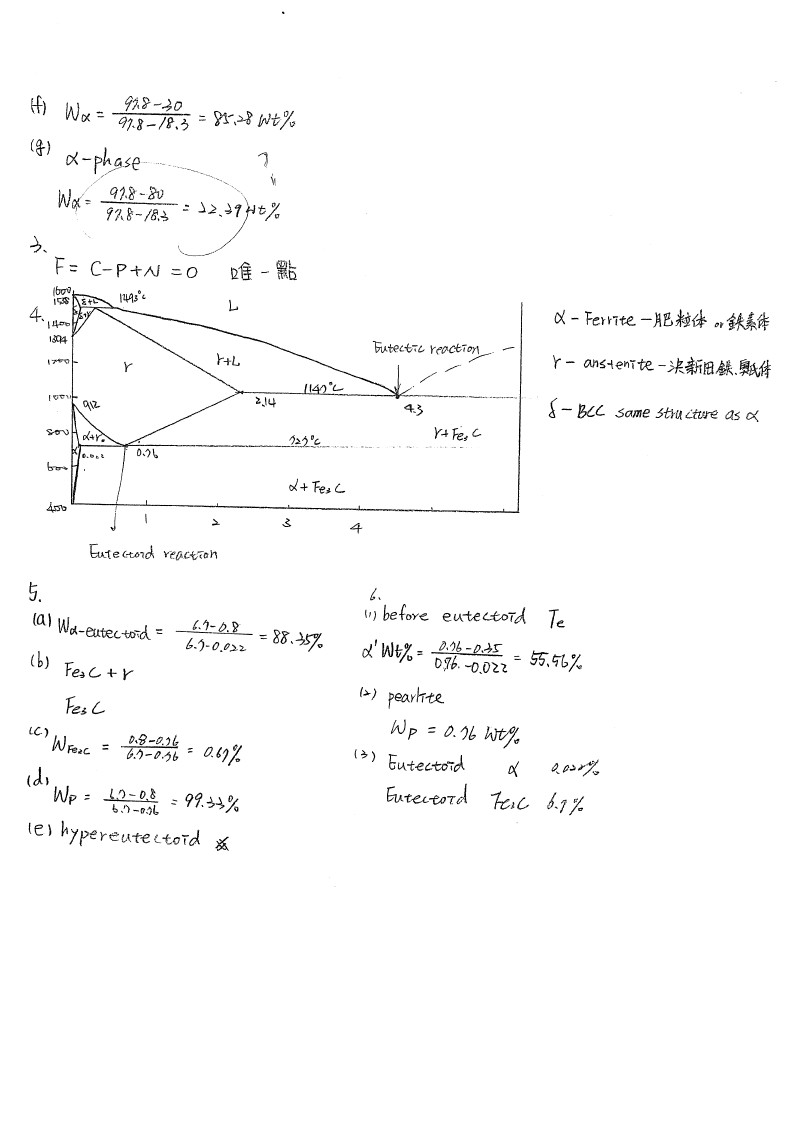 (f) Wα = (97.8-30)/(97.8-18.3) = 85.28 wt%
(g) α-phase
Wα = (97.8-80)/(97.8-18.3) = 22.39 wt%
3.
F = C-P+N = 0 唯一點
4.
1600
1538
1400
1394
1200
1000
800
600
400
δ+L
1493°C
L
δ
δ+r
r
r+L
Eutectic reaction
1147°C
2.14
4.3
912
α+r
α
0.022
0.76
727°C
r+Fe3C
α+Fe3C
1 2 3 4
Eutectoid reaction
α - Ferrite - 肥粒体 or 鉄素体
r - anstenite - 沃斯田鉄、奧氏体
δ - BCC same structure as α
5.
(a) Wα-eutectoid = (6.7-0.8)/(6.7-0.022) = 88.35%
(b) Fe3C + r
Fe3C
(c) WFe3C = (0.8-0.76)/(6.7-0.76) = 0.67%
(d) Wp = (6.7-0.8)/(6.7-0.76) = 99.33%
(e) hypereutectoid ※
6.
(1) before eutectoid Te
α' Wt% = (0.76-0.35)/(0.76-0.022) = 55.56%
(2) pearlite
Wp = 0.76 Wt%
(3) Eutectoid α 0.022%
Eutectoid Fe3C 6.7%